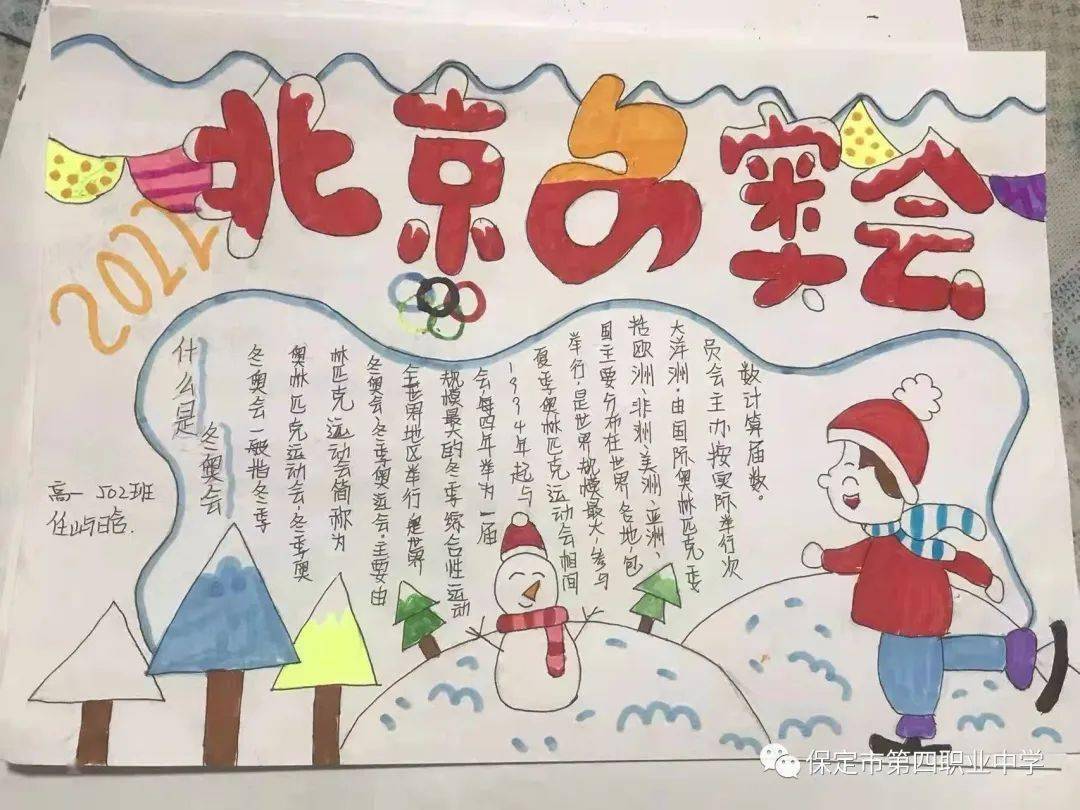 北京冬奥会
2022
什么是
冬奥会
冬奥会一般指冬季
奥林匹克运动会,冬季奥
林匹克运动会简称为
冬奥会冬季奥运会.主要由
全世界地区举行,是世界
规模最大的冬季综合性运动
会每四年举为一届
1994年起与
夏季奥林匹克运动会相间
举行,是世界规模最大,参与
国主要分布在世界各地,包
括欧洲、非洲、美洲、亚洲、
大洋洲,由国际奥林匹克委
员会主办按实际举行次
数计算届数。
高一502班
任屿晗.
保定市第四职业中学